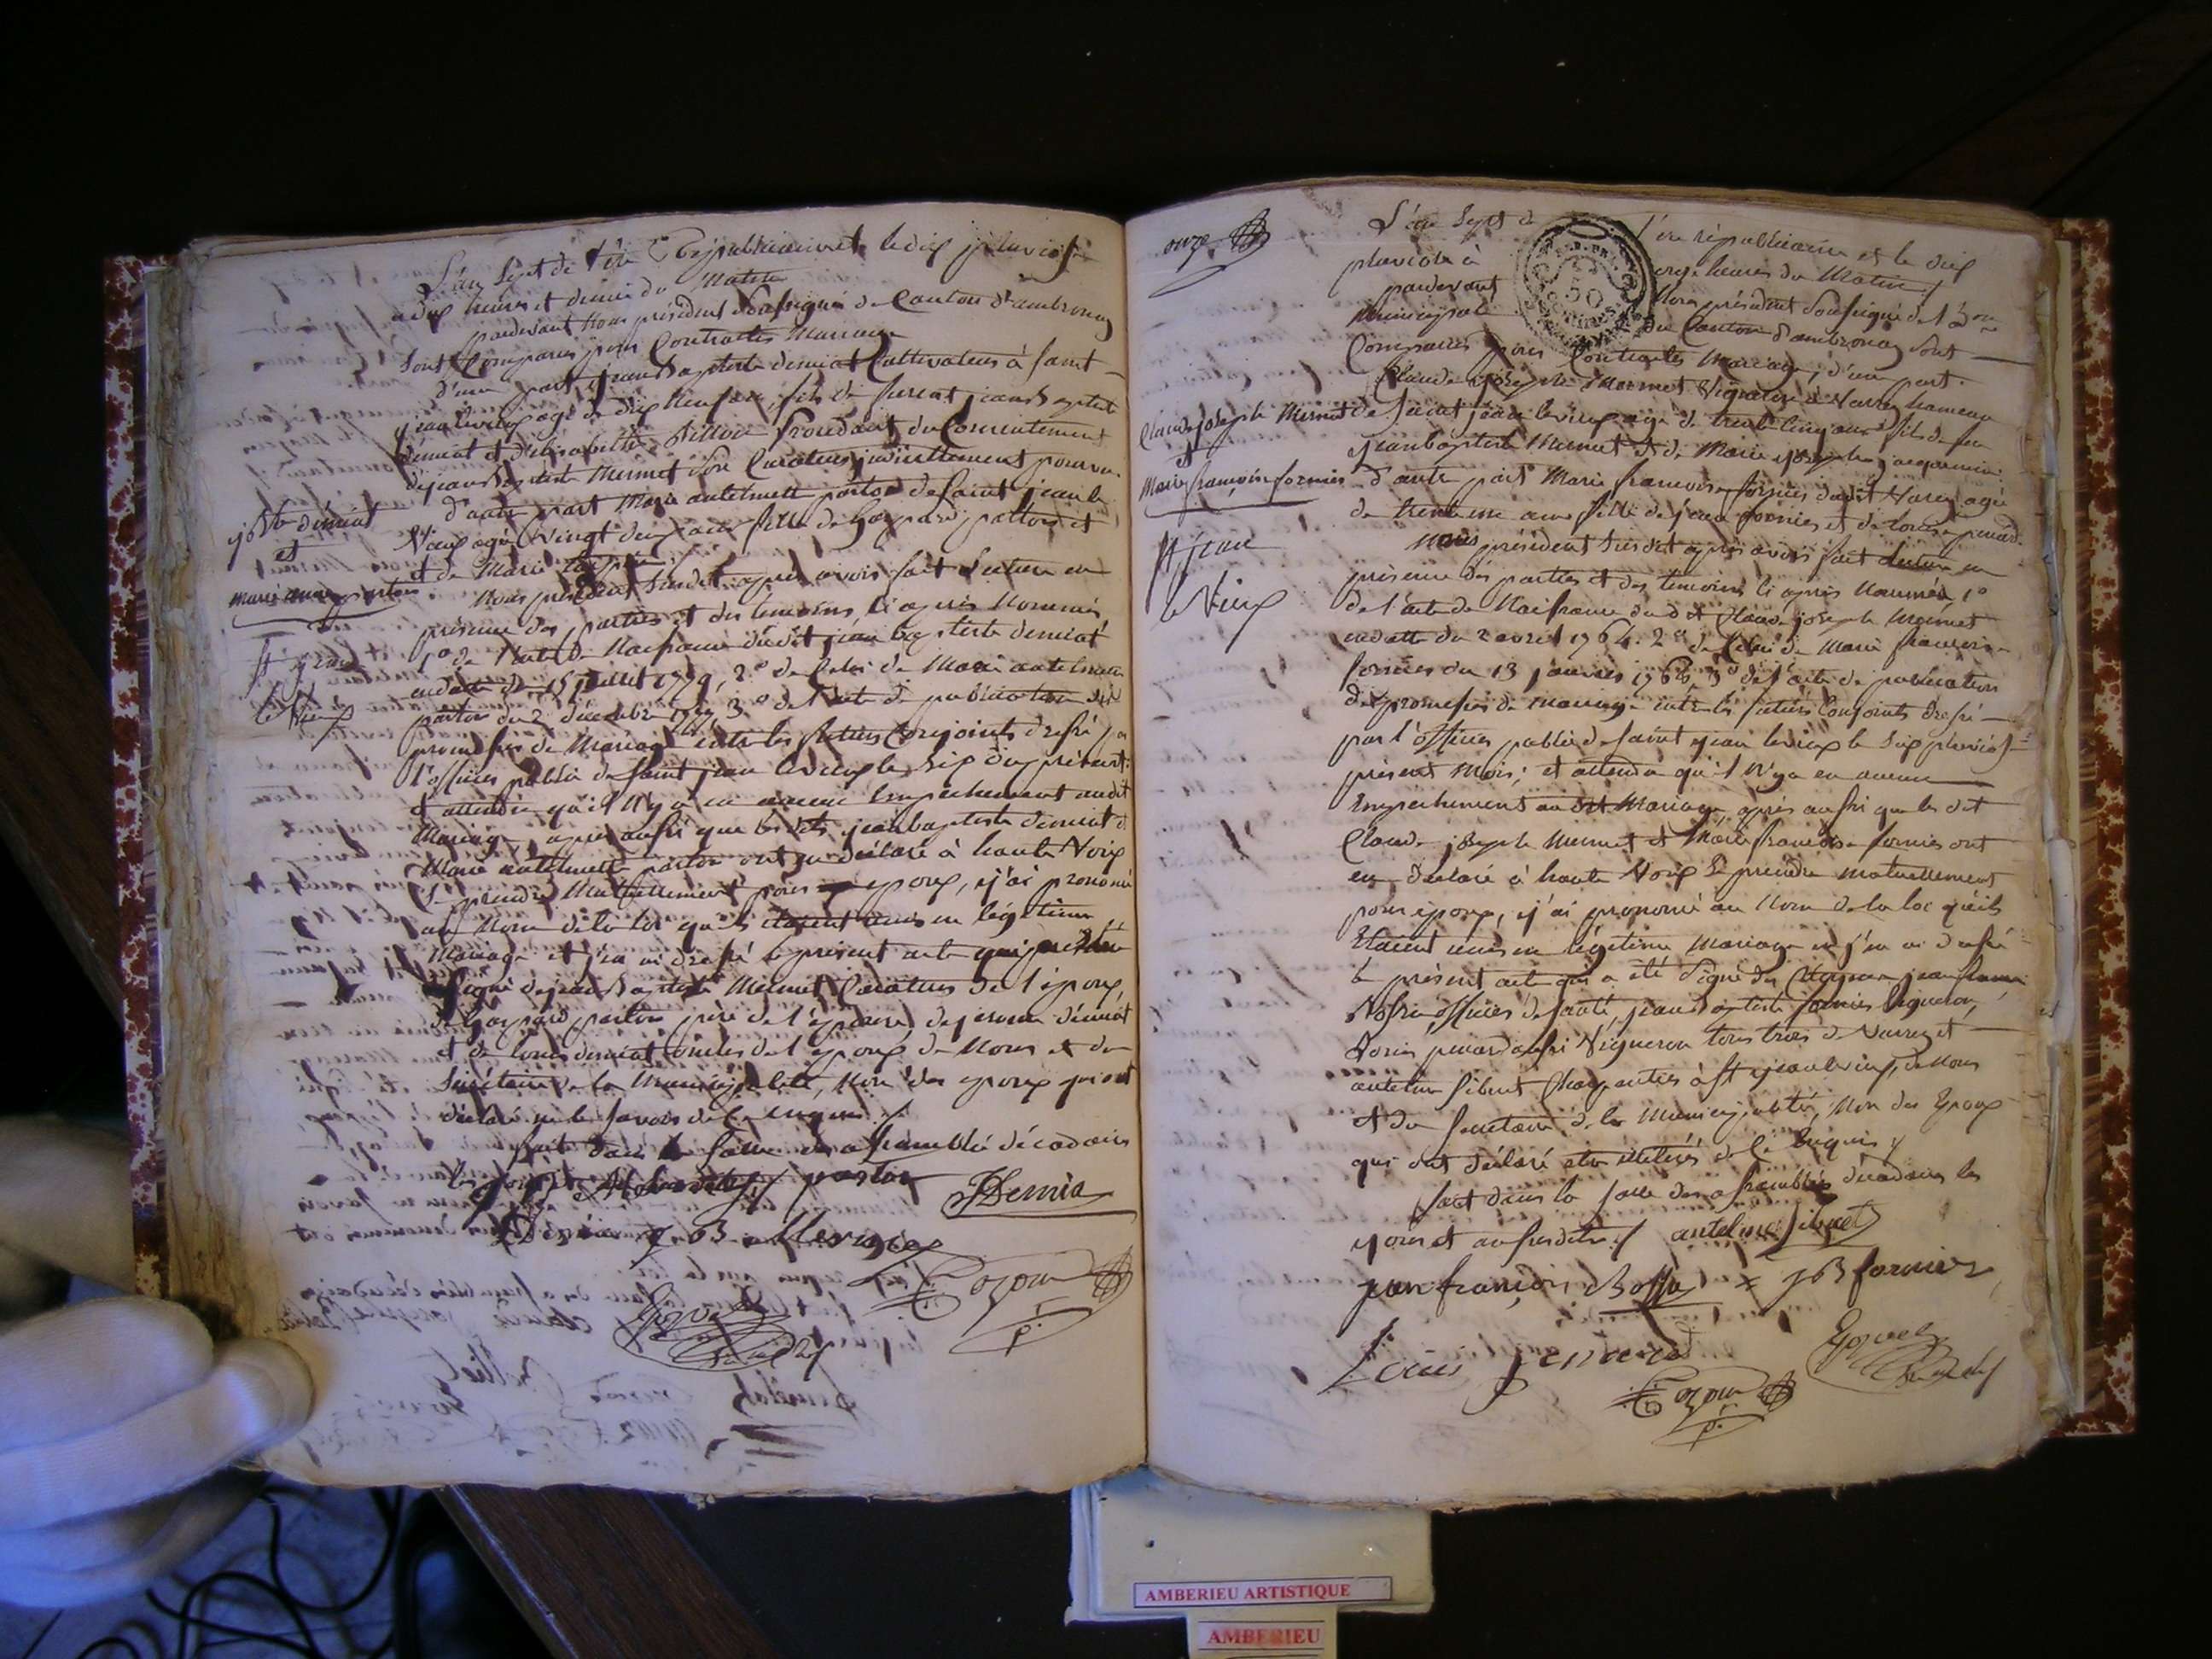 L'an Sept de l'ère Républicaine et le dix pluviose
a dix heures et demie du Matin
pardevant Nous président Soussigné de Canton d'ambronay
Sont Comparus pour Contracter Mariage
d'une part jean Baptiste demiat Cultivateur à Saint
jean levieux agé de dix Neuf ans, fils de feu jean Baptiste
demiat et d'elisabeth Procédant du Consentement
de jean Baptiste Mermet Son Curateur pourvu
d'autre part Marie antelmette parton de Saint jean le
Vieux agée Vingt deux ans fille de Gaspard parton et
et de Marie
Nous président Susdit après avoir fait Lecture en
présence des parties et des temoins ci après Nommés
1° de l'acte de Naissance dudit jean baptiste demiat
en datte du 15 juillet 1779, 2° de Celui de Marie antelmette
parton du 2 décembre 3° de l'acte de publication des
promesses de Mariage entre les futurs Conjoints dressé par
l'officier public de Saint jean levieux le Six du présent
et attendu qu'il N'y a eu aucun Empechement audit
Mariage, après aussi que lesdits jean baptiste demiat et
Marie antelmette parton ont eu déclaré à haute Voix
Se prendre Mutuellement pour epoux, j'ai prononcé
au Nom de la loi qu'ils étaient unis en légitime
Mariage et j'en ai dressé le présent acte qui a été
Signé de jean Baptiste Mermet Curateur de l'époux,
de Gaspard parton père de l'épouse, de demiat
et de Louis demiat oncles de l'époux de Nous et du
Secrétaire de la Municipalité, Non des epoux qui ont
déclaré ne le Savoir de ce enquis ./.
fait dans la Salle des assemblées décadaires
les jour et an Susdits ./. parton
JDemia
LDemia JB Mermet
Cozon
p.
jBte demiat
et
marie anne parton
St jean
le Vieux
onze
L'an Sept de l'ère républicaine et le dix
pluviose à onze heures du Matin
pardevant Nous président Soussigné de l'adon
Municipale du Canton d'ambronay Sont
Comparus pour Contracter Mariage, d'une part.
Claude joseph Mermet Vigneron à Varey hameau
de Saint jean levieux agé de trente cinq ans fils de feu
jean baptiste Mermet et de Marie josephe jacquemin
d'autre part Marie francoise fornier dudit Varey agée
de trente ans fille de jean fornier et de louise penard.
Nous président Susdit après avoir fait lecture en
présence des parties et des temoins ci après Nommés, 1°
de l'acte de Naissance dudit Claude joseph Mermet
en datte du 2 avril 1764. 2° de Celui de Marie francoise
fornier du 13 janvier 3° de l'acte de publication
des promesses de mariage entre les futurs Conjoints dressé
par l'officier public de Saint jean levieux le Six pluviose
présent Mois; et attendu qu'il N'y a eu aucun
Empechement audit Mariage, après aussi que lesdit
Claude joseph Mermet et Marie francoise fornier ont
eu déclaré à haute Voix Se prendre Mutuellement
pour epoux, j'ai prononcé au Nom de la loi qu'ils
Etaient unis en légitime Mariage et j'en ai dressé
le présent acte qui a été Signé des Citoyens jean francois
officier de Santé, jean Baptiste fornier Vigneron,
Louis penard aussi Vigneron tous trois de Varey et
antelme Sibuet Charpentier à St jean levieux, de Nous
et du Secretaire de la Municipalité, Non des Epoux
qui ont déclaré etre illitérés de Ce Enquis ./.
fait dans la Salle des assemblées décadaires les
jour et an Susdits ./. antelme Sibuet
jean françois Bossu x JB fornier
Louis penard
Cozon
p.
Claude joseph Mermet
et
Marie françoise fornier
St jean
le Vieux
50
AMBERIEU ARTISTIQUE
AMBERIEU